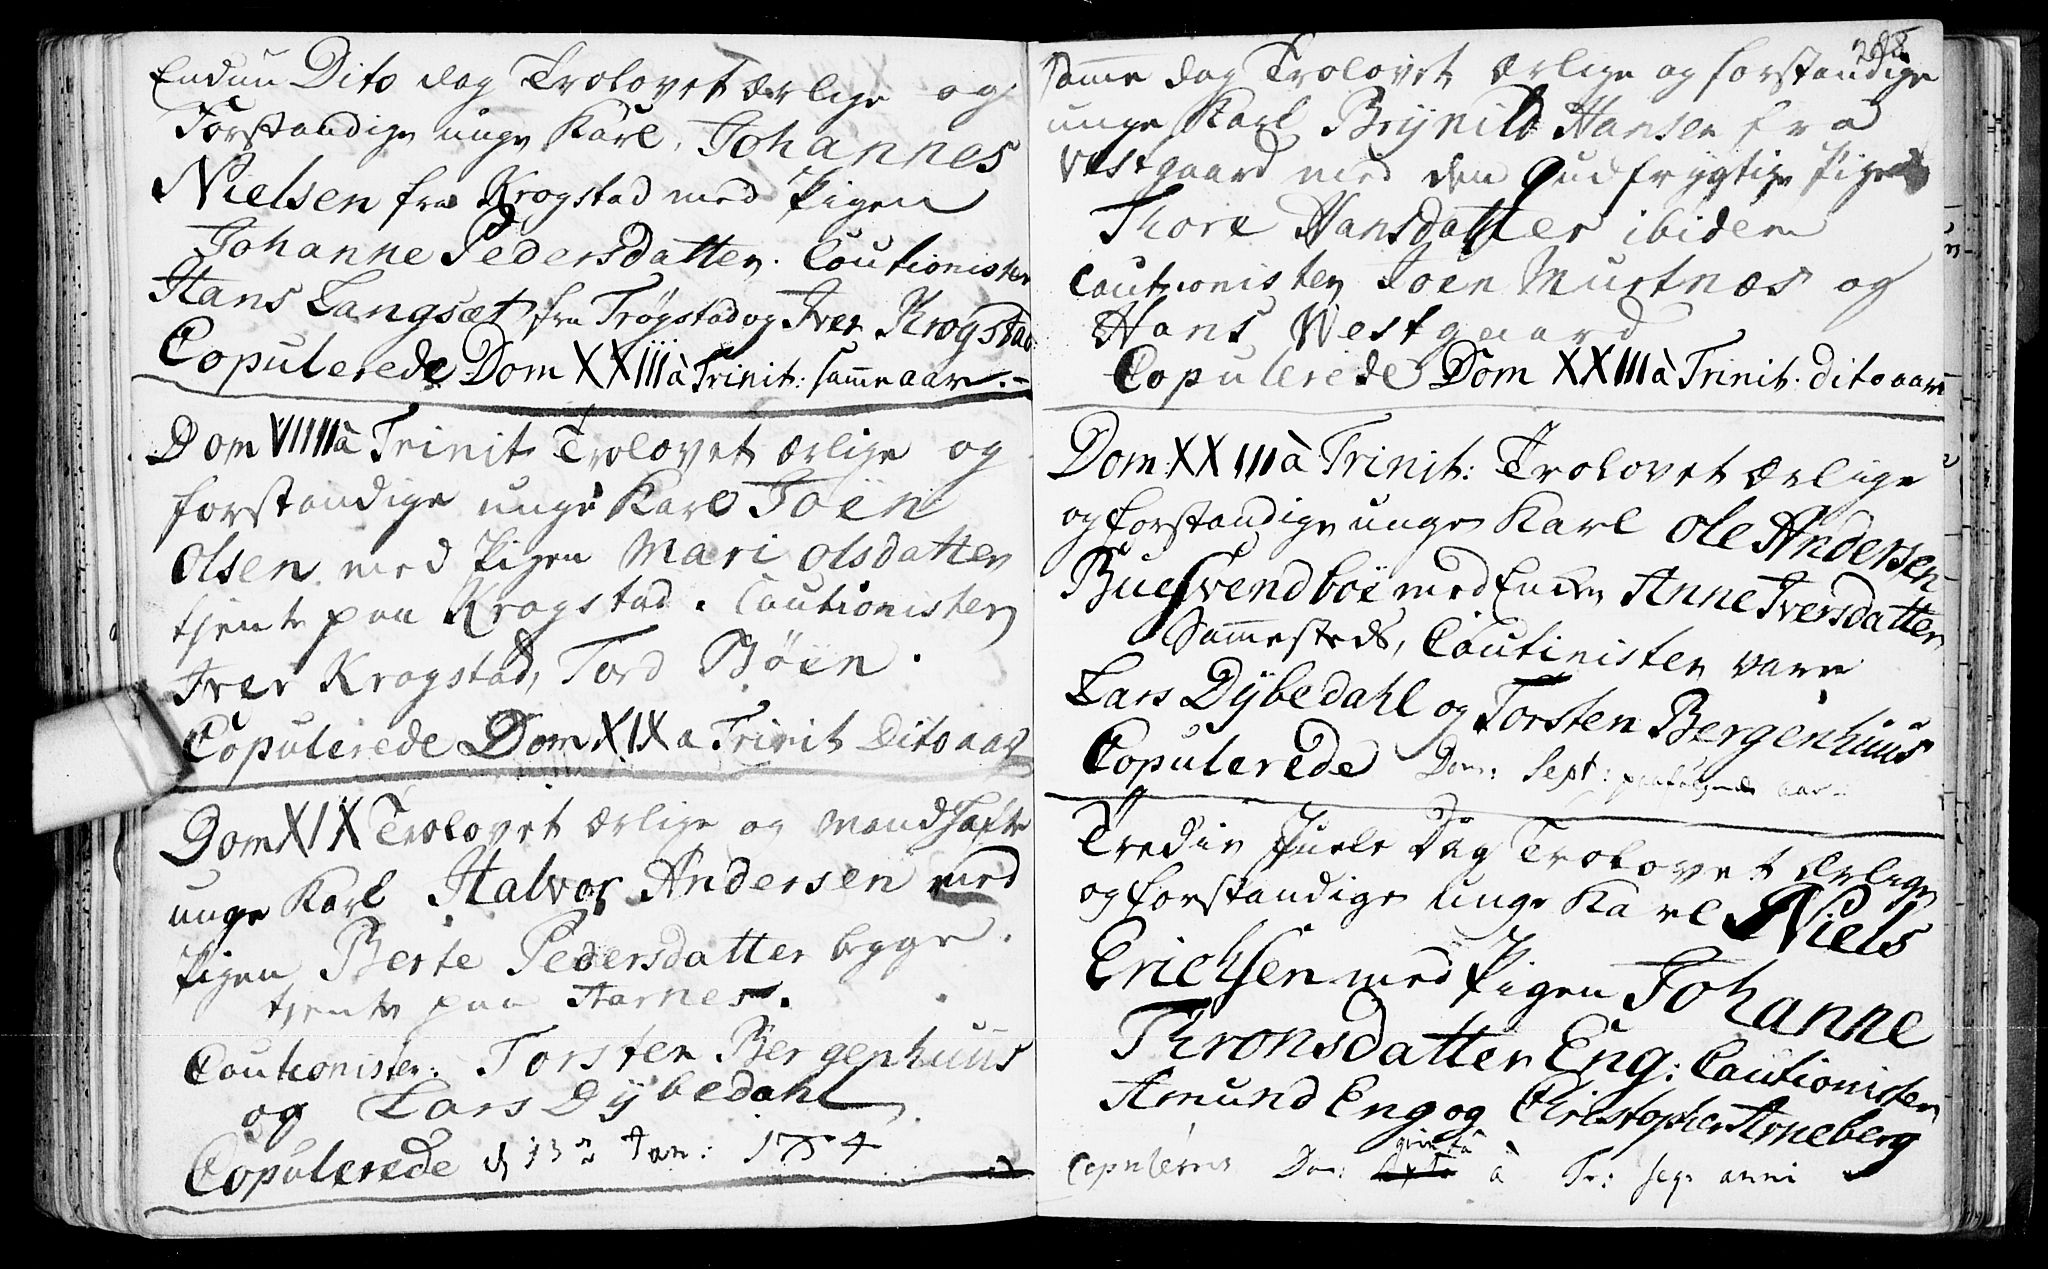 Endnu Dito dag Trolovet ærlige og
Forstandige unge Karl, Johannes
Nielsen fra Krogstad med Pigen
Johanne Pedersdatter. Cautionister
Hans Langsæt fra Trøgstad og Iver Krogstad
Copulerede Dom XXIII à Trinit: samme aar.-
Dom VIIIII à Trinit Trolovet ærlige og
forstandige unge Karl Joën
Olsen med Pigen Mari Olsdatter
tjente paa Krogstad. Cautionister
Iver Krogstad, Tord Böen.
Copulerede Dom XIX a Trinit Dito aar
Dom XIX Trolovet ærlige og Mandhafte
unge Karl Halvor Andersen med
Pigen Berte Pedersdatter begge.
tjente paa Aarnes.
Cautionister: Torsten Bergenhuus
og Lars Dÿbedahl
Copulerede d 13 Jan: 1754
208
samme dag Trolovet ærlige og forstandige
unge Karl Brÿnild Hansen fra
Vestgaard med den gudfrygtige Pige
Thore Hansdatter ibidem
Cautionister Joen Murtnæs og
Hans Westgaard
Copulerede Dom XXIII à Trinit. dito aar
Dom: XXIII à Trinit: Trolovet Ærlige
og forstandige unge Karl Ole Andersen
Bue Svendboe med Enken Anne Iversdatter
Sammesteds, Cautinister vare
Lars Dÿbedahl og Torsten Bergenhuus
Copulerede Dom: Sept: paafølgende aar.
Tredie Juele Dag Trolovet Ærlige
og forstandige unge Karl Niels
Erichsen med Pigen Johanne
Thronsdatter Eng: Cautionister
Amund Eng og Christopher Arneberg
Copuleres Dom: à Tr: seq: anni